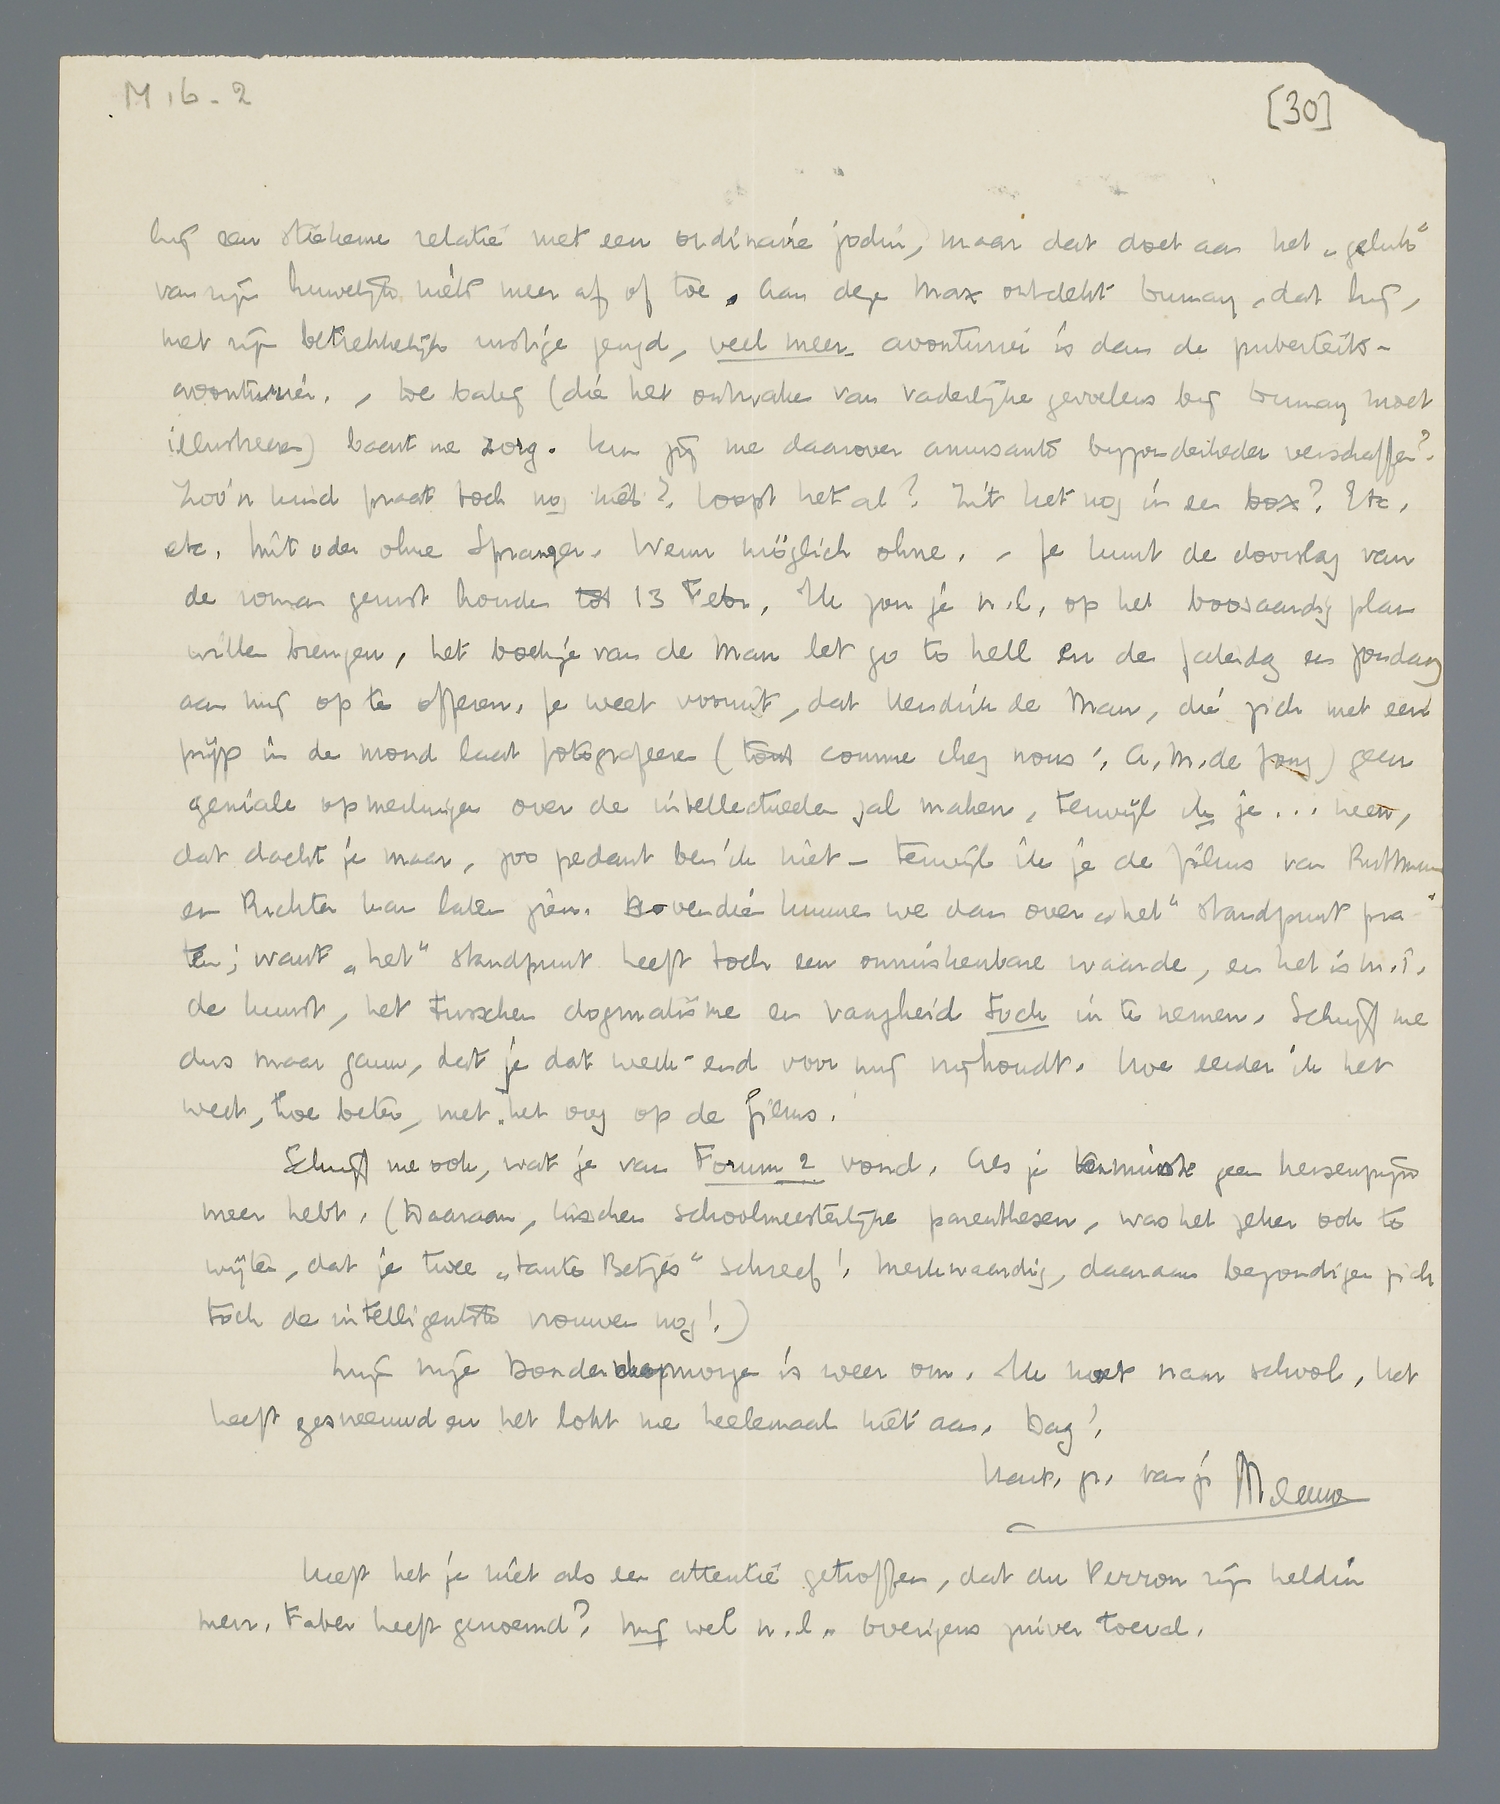 M 16-2
[30]
hij een stiekeme relatie met een ordinaire jodin, maar dat doet aan het „geluk"
van zijn huwelijk niets meer af of toe. Aan deze Max ontdekt Dumay, dat hij,
met zijn betrekkelijk rustige jeugd, veel meer avonturier is dan de puberteits-
avonturier. – De baby (die het ontwaken van vaderlijke gevoelens bij Dumay moet
illustreeren) baart me zorg. Kun jij me daarover amusante bijzonderheden verschaffen?
Zoo'n kind praat toch nog niet? Loopt het al? Zit het nog in een box? Etc.
etc. Mit oder ohne Spranger. Wenn möglich ohne. – Je kunt de doorslag van
de roman gerust houden tot 13 Febr. Ik zou je n.l. op het boosaardig plan
willen brengen, het boekje van de Man let go to hell en de Zaterdag en Zondag
aan mij op te offeren. Je weet vooruit, dat Hendrik de Man, die zich met een
pijp in de mond laat fotografeeren (tout comme chez nous: A.M. de Jong) geen
geniale opmerkingen over de intellectueelen zal maken, terwijl ik je ... neen,
dat dacht je maar, zoo pedant ben ik niet – terwijl ik je de films van Ruttmann
en Richter kan laten zien. Bovendien kunnen we dan over „het" standpunt pra-
ten; want „het" standpunt heeft toch een onmiskenbare waarde, en het is m.i.
de kunst, het tusschen dogmatisme en vaagheid toch in te nemen. Schrijf me
dus maar gauw, dat je dat week-end voor mij vrijhoudt. Hoe eerder ik het
weet, hoe beter, met het oog op de films.
Schrijf me ook, wat je van Forum 2 vond. Als je tenminste geen hersenpijn
meer hebt. (Daaraan, tusschen schoolmeesterlijke parenthesen, was het zeker ook te
wijten, dat je twee „tante Betjes" schreef! Merkwaardig, daaraan bezondigen zich
toch de intelligentste vrouwen nog!)
Mijn vrije Donderdagmorgen is weer om. Ik moet naar school, het
heeft gesneeuwd en het lokt me heelemaal niet aan. Dag!
Hart. gr. van je Menno
Heeft het je niet als een attentie getroffen, dat du Perron zijn heldin
mevr. Faber heeft genoemd? Mij wel n.l. Overigens zuiver toeval.